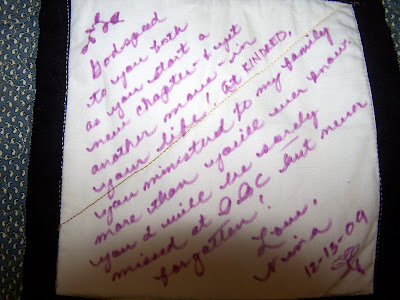 Godspeed
to you both
as you start a
new chapter & yet
another move - in
your life! At KINDRED,
you ministered to my family
more than you'll ever know.
You 2 will be sorely
missed at OOC but never
forgotten!
Love,
Nina
12-13-09